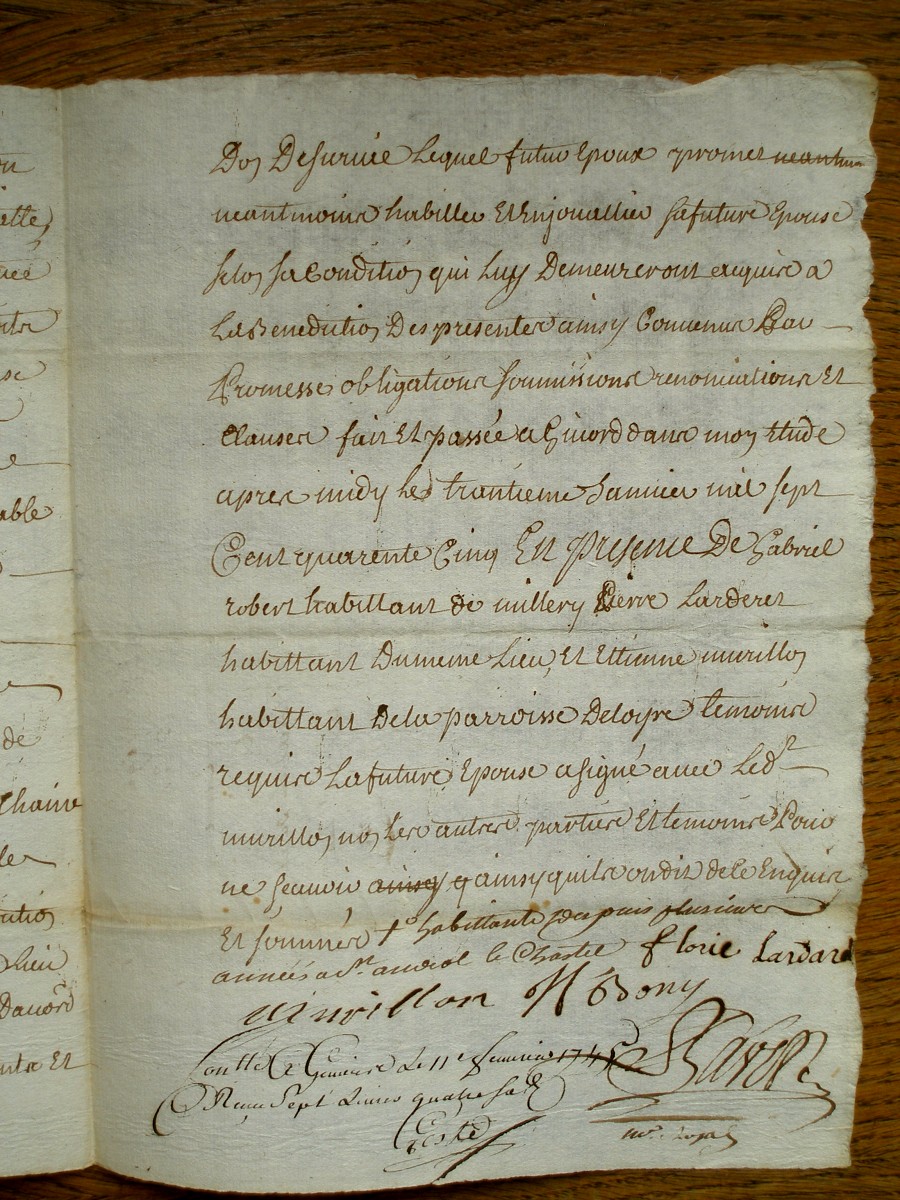 on
ette
uée
ntr
se
able
de
Chaine
de
ution
Lieu
Dauord
ntre Et
Don De survie Lequel futur Epoux promet neantm
neantmoins habiller Et Enjouallier sa future Epouse
selon sa Condition qui Luy Demeureront acquis a
La Benediction Des presentes ainsy Convenus Par
Promesses obligations soumissions renonciations Et
Clauses fait Et passée a Givord dans mon Etude
apres midy Le trantieme Janvier mil sept
Cent quarente Cinq En presence De Gabriel
robert habittant de millery Pierre Larderet
habittant Du meme Lieu, Et Ettienne murillon
habittant De la parroisse De loyre temoins
requis La future Epouse a signé avec Ledt
murillon non Les autres parties Et temoins Pour
ne sçavoir ainsy q ainsy quils ont dit de ce Enquis
Et sommés + habittante depuis plusieurs
années a St andeol le Chastel florie Lardard
murillon Bony
Conttlé a Givors Le 11e feuvrier 1745
Reçu Sept Livres quatre sols